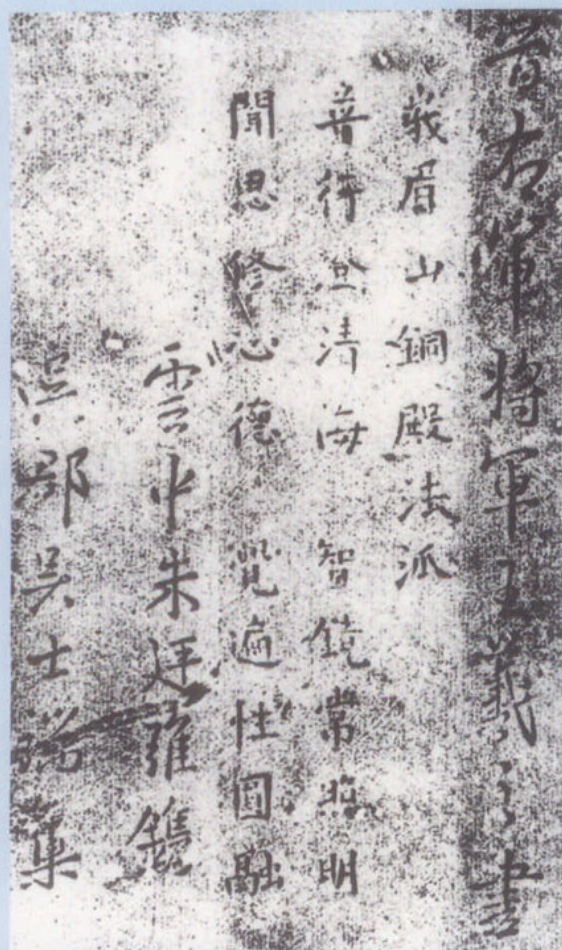 晋右軍将軍王羲之書
峩眉山銅殿法派
普行澄清海 智鏡常照明
聞思修心德 覺遍性圓融
雲中朱廷維鐫
吳郡吳士端集